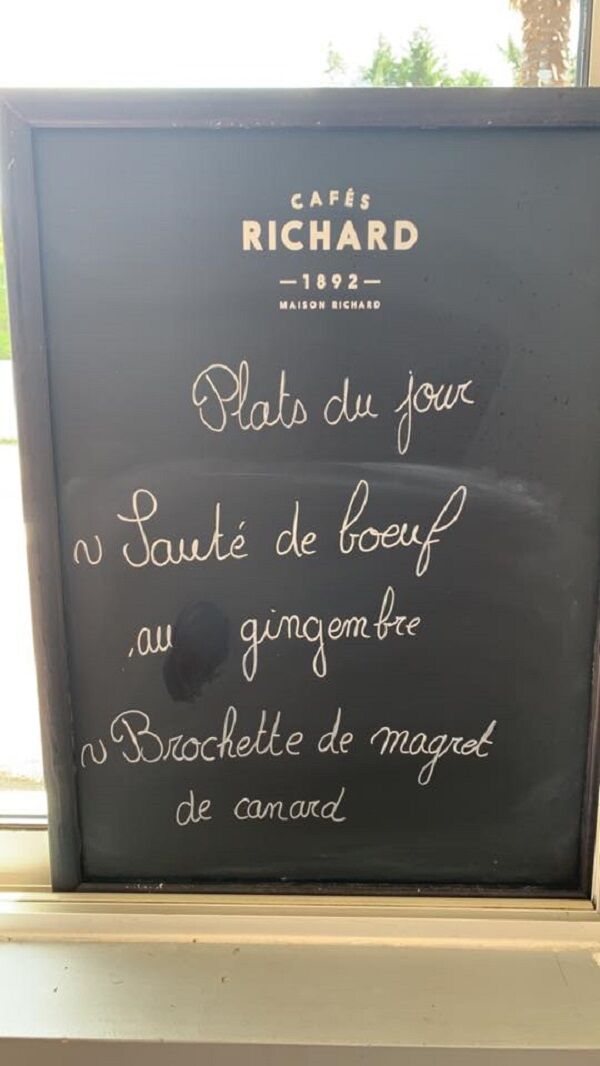 CAFÉS
RICHARD
—1892—
MAISON RICHARD
Plats du jour
~ Sauté de boeuf
au gingembre
~ Brochette de magret
de canard